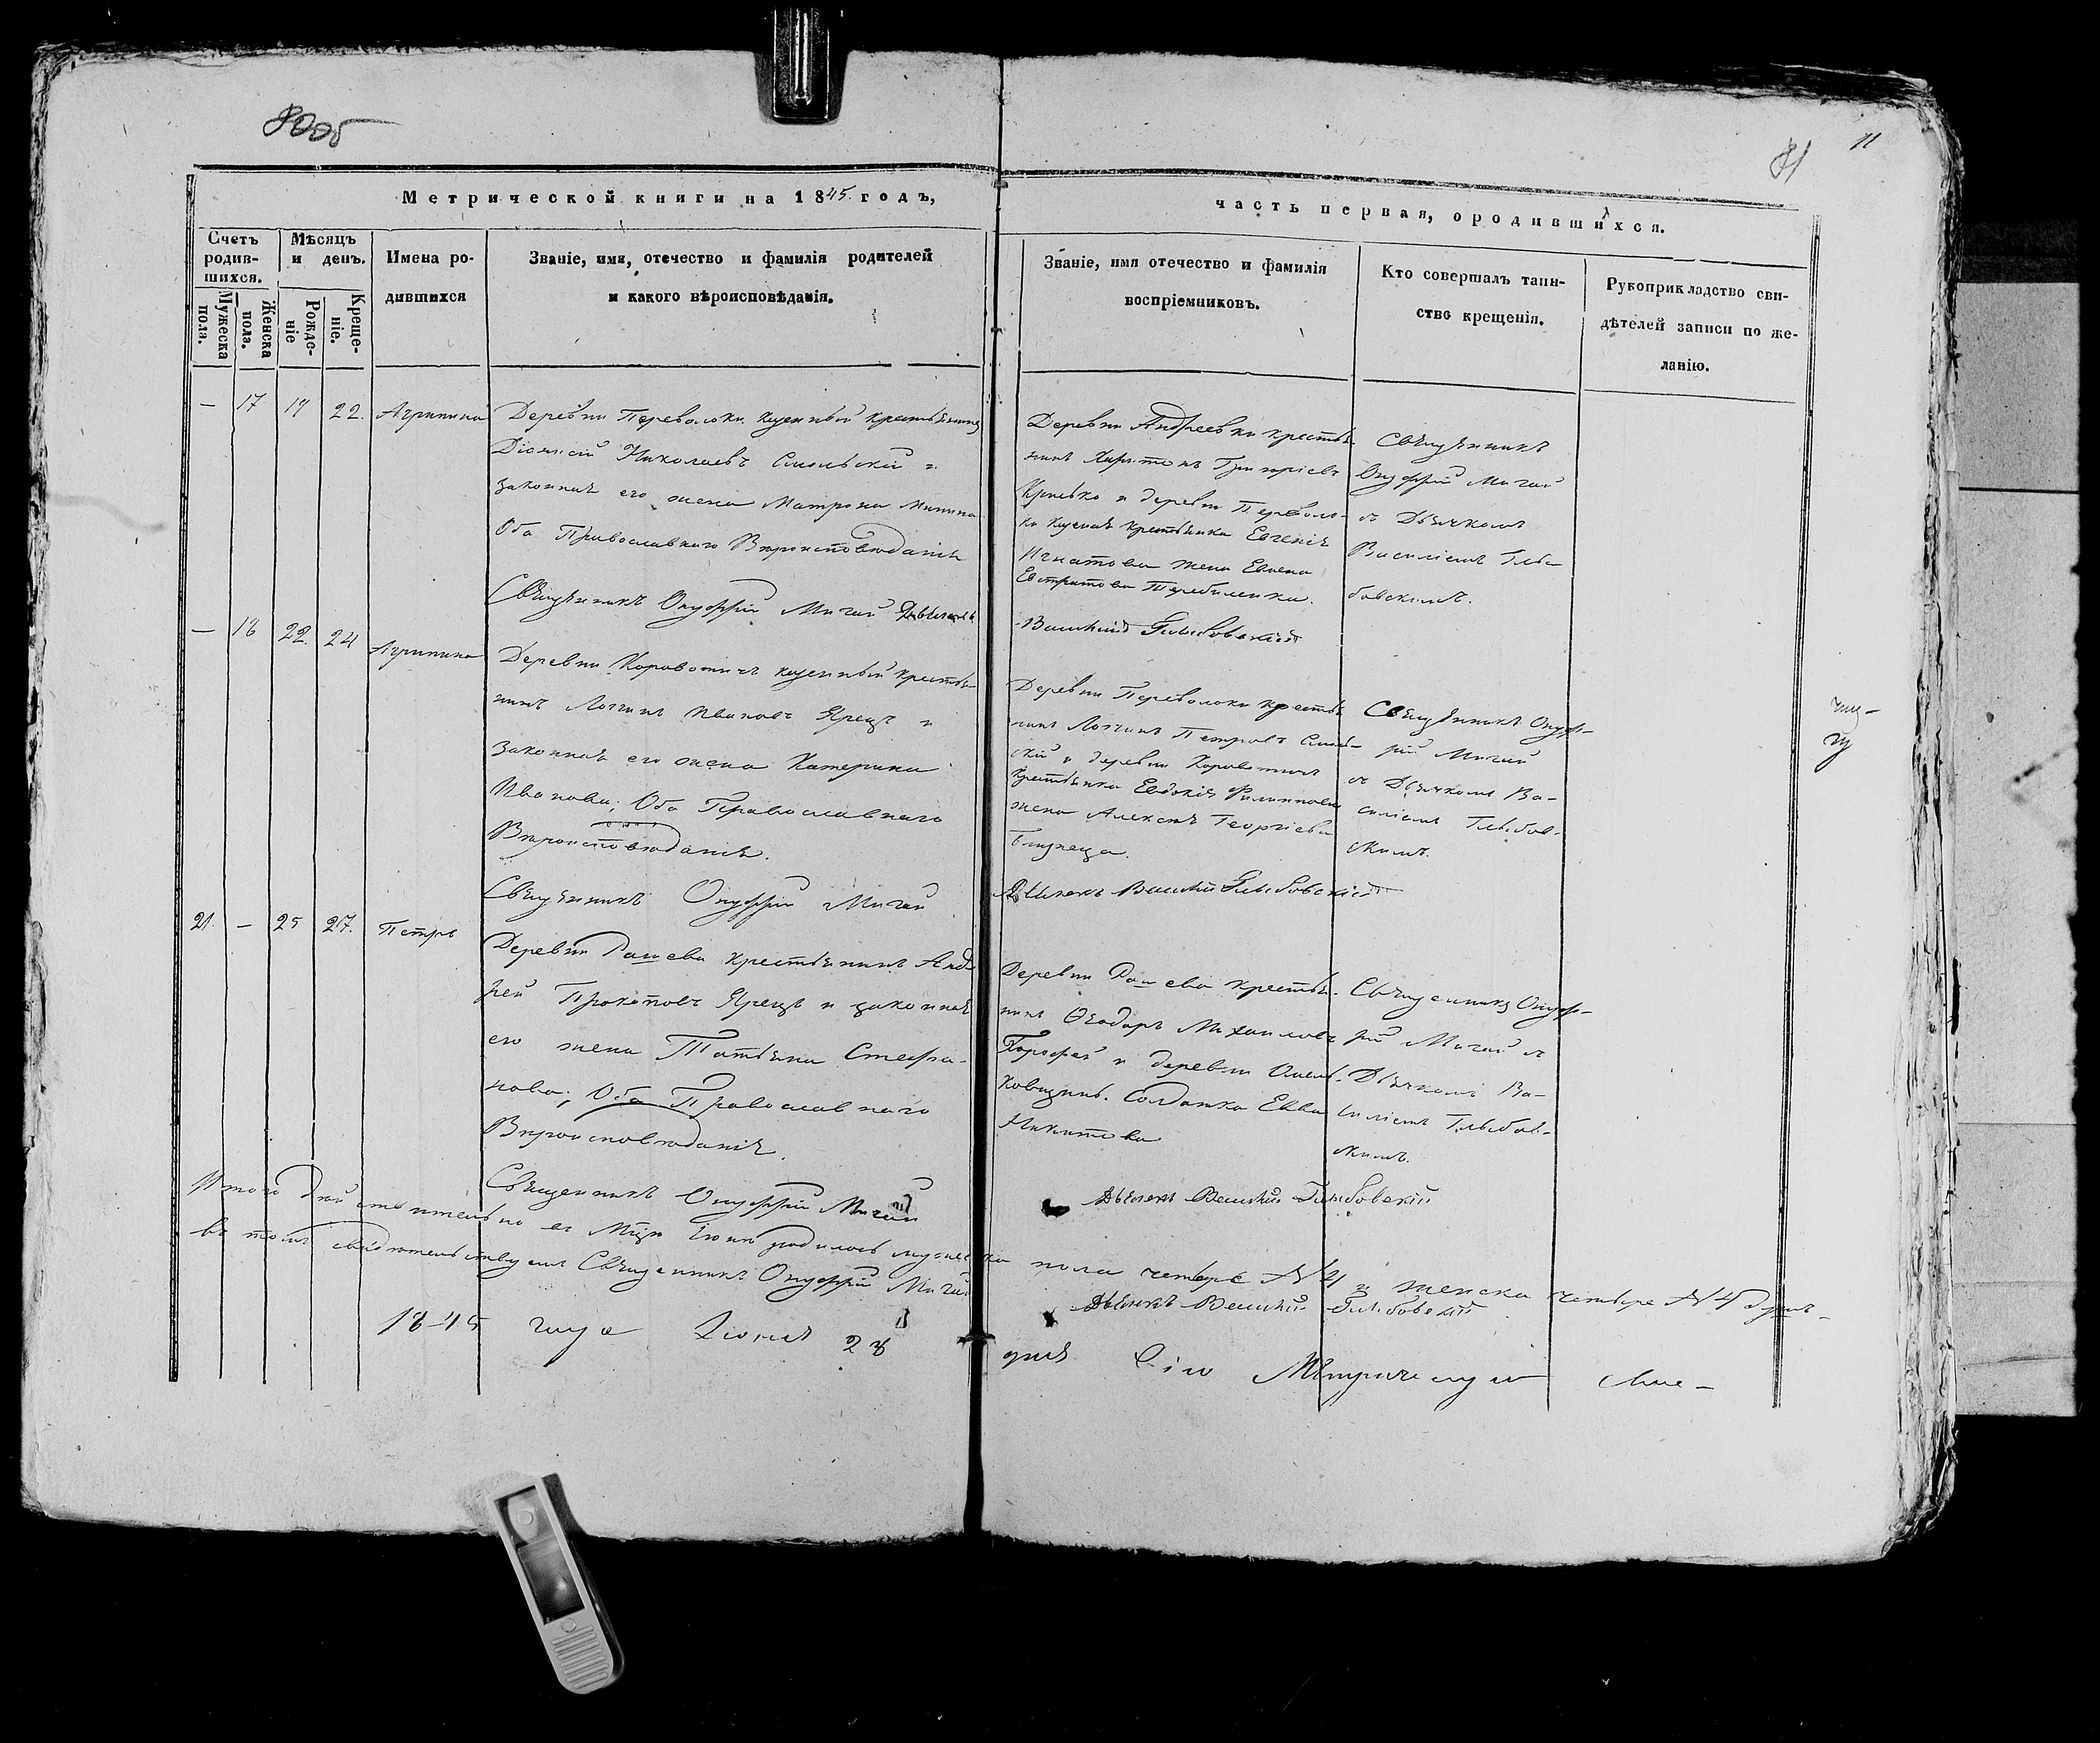 80об
81
11
Метрической книги на 1845 годъ,
часть первая, ородившихся.
Счетъ родив-шихся.
Мужеска пола.
Женска пола.
Мѣсяцъ и день.
Рожде-ніе
Креще-ніе.
Имена ро-
дившихся
Званіе, имя, отечество и фамилія родителей
и какого вѣроисповѣданія.
Званіе, имя отечество и фамилія
воспріемниковъ.
Кто совершалъ таин-
ство крещенія.
Рукоприкладство сви-
дѣтелей записи по же-
ланію.
— 17 19 22. Агрипина
Деревни Переволоки казенный крестьянинъ
Діонисій Николаевъ Смольскій и
законная его жена Матрона Минина
Оба Православнаго Вѣроисповѣданія
Священникъ Онуфрій Мигай Дьячекъ
Деревни Андреевки крестья-
нинъ Харитонъ Григоріевъ
и деревни Перволо-
ки казенная крестьянка Евгенія
Игнатова жена
Евстратова
Священникъ
Онуфрій Мигай
съ Дьячкомъ
Василіемъ Глы-
бовскимъ.
Василій Глыбовскій
— 18 22. 24 Агрипина
Деревни Хоровотичъ казенный крестья-
нинъ Логинъ Ивановъ Ярецъ и
законная его жена Катерина
Иванова; Оба Православнаго
Вѣроисповѣданія.
Священникъ Онуфрій Мигай
Деревни Переволоки крестья
нинъ Логинъ Петровъ Смоль-
скій и деревни
крестьянка Евдокія Филиппова
жена Алексѣя Георгіева
Священникъ Онуф-
рій Мигай
съ Дьячкомъ Ва-
силіемъ Глыбов-
скимъ.
Дьячекъ Василій Глыбовскій
21. — 25 27. Петръ
Деревни Рашева крестьянинъ Анд
рей Прокоповъ Ярецъ и законная
его жена Татьяна Стефа-
нова; Оба Православнаго
Вѣроисповѣданія.
Священникъ Онуфрій Мигай
Деревни Рашева крестья-
нинъ Ѳеодоръ Михайловъ
и деревни Омель-
ковщины. Солдатка Евва
Никитова
Священникъ Онуф-
рій Мигай съ
Дьячкомъ Ва-
силіемъ Глыбов-
скимъ.
Дьячекъ Василій Глыбовскій
Итого дѣйствительно въ Мцѣ Іюнѣ родилось мужеска пола четыре № 4 и женска четыре № 4 душъ
въ томъ свидѣтельствуемъ Священникъ Онуфрій Мигай
Дьячекъ Василій Глыбовскій
1845 года Іюня 28 дня Сію Метрическую